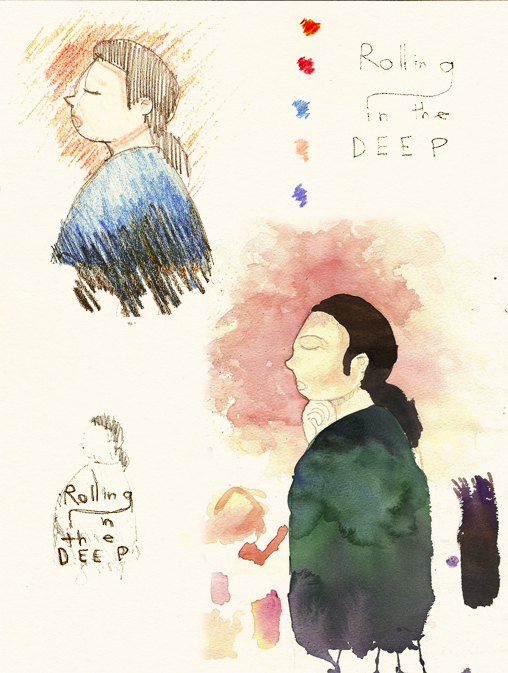 Rolling
in the
DEEP
Rolling
in
the
DEEP